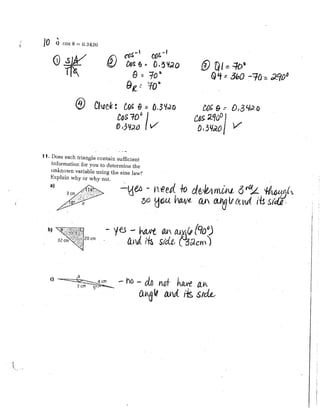 10 a cos θ = 0.3420
① S|A T|C
② cos⁻¹ cos⁻¹
cos θ = 0.3420
θ = 70°
θR = 70°
③ Q1 = 70°
Q4 = 360 - 70 = 290°
④ Check: cos θ = 0.3420
cos 70°
0.3420 ✓
cos θ = 0.3420
cos 290°
0.3420 ✓
11. Does each triangle contain sufficient
information for you to determine the
unknown variable using the sine law?
Explain why or why not.
a)
3 cm
- yes - need to determine 3rd ∠ though
so you have an angle and its side.
b)
32 cm
20 cm
- yes - have an angle (90°)
and its side (32cm)
c)
4 cm
5 cm
- no - do not have an
angle and its side